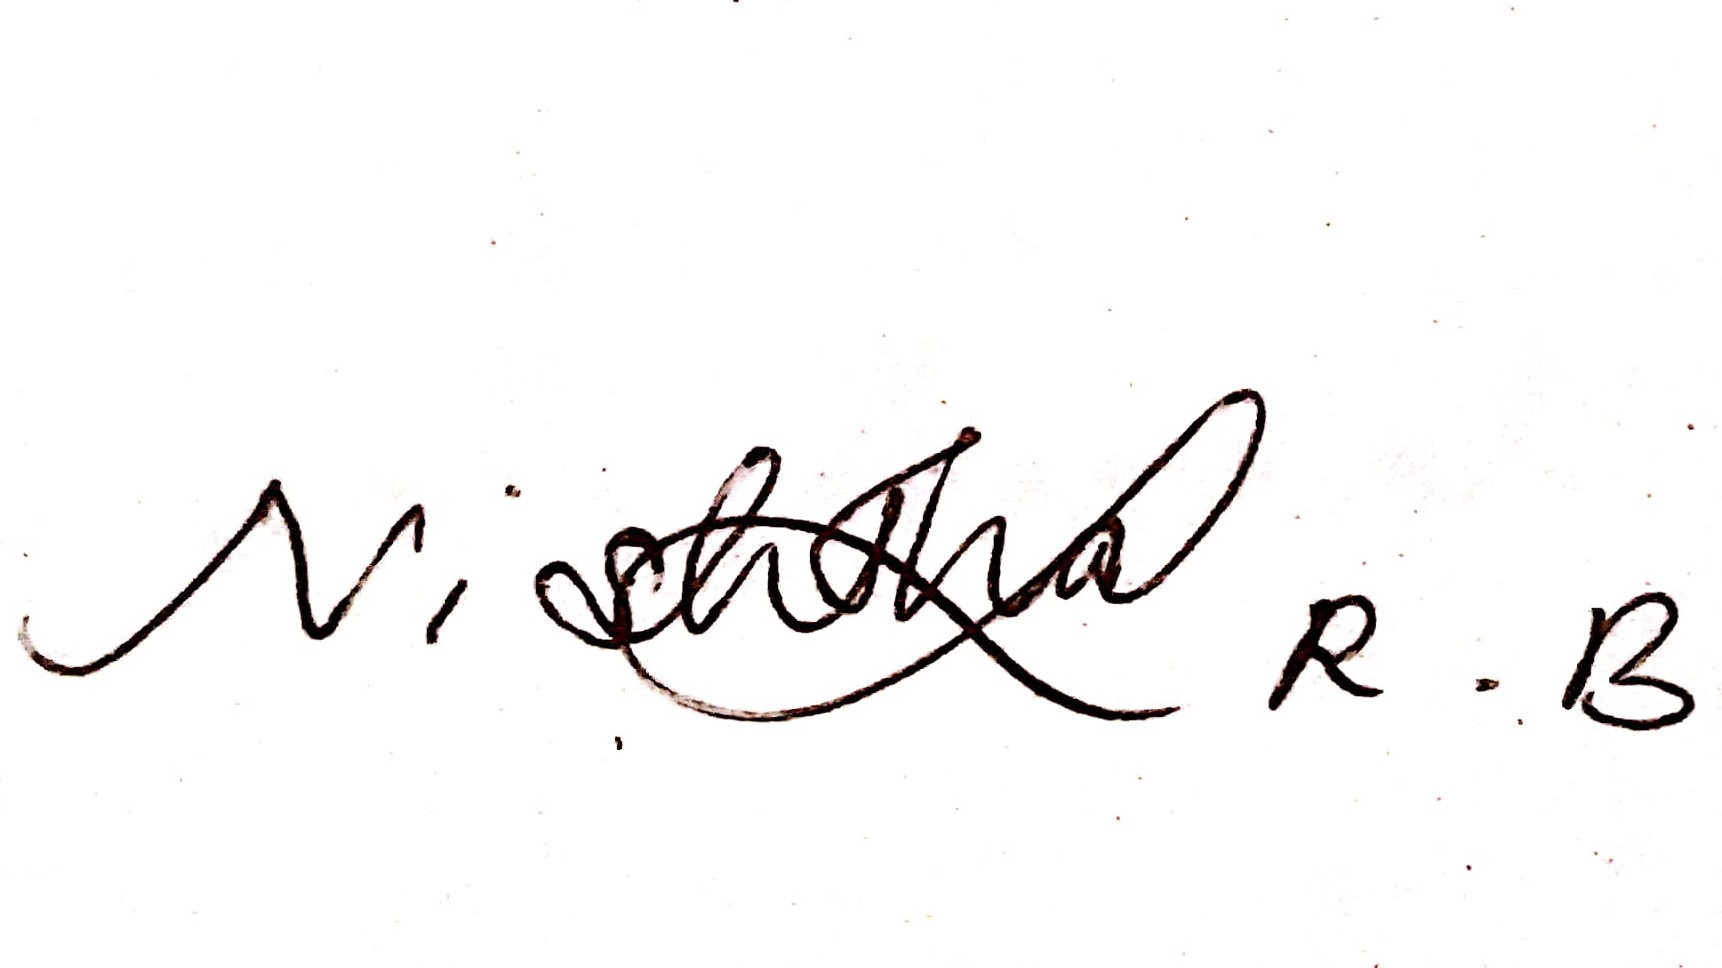 Nishitha R.B